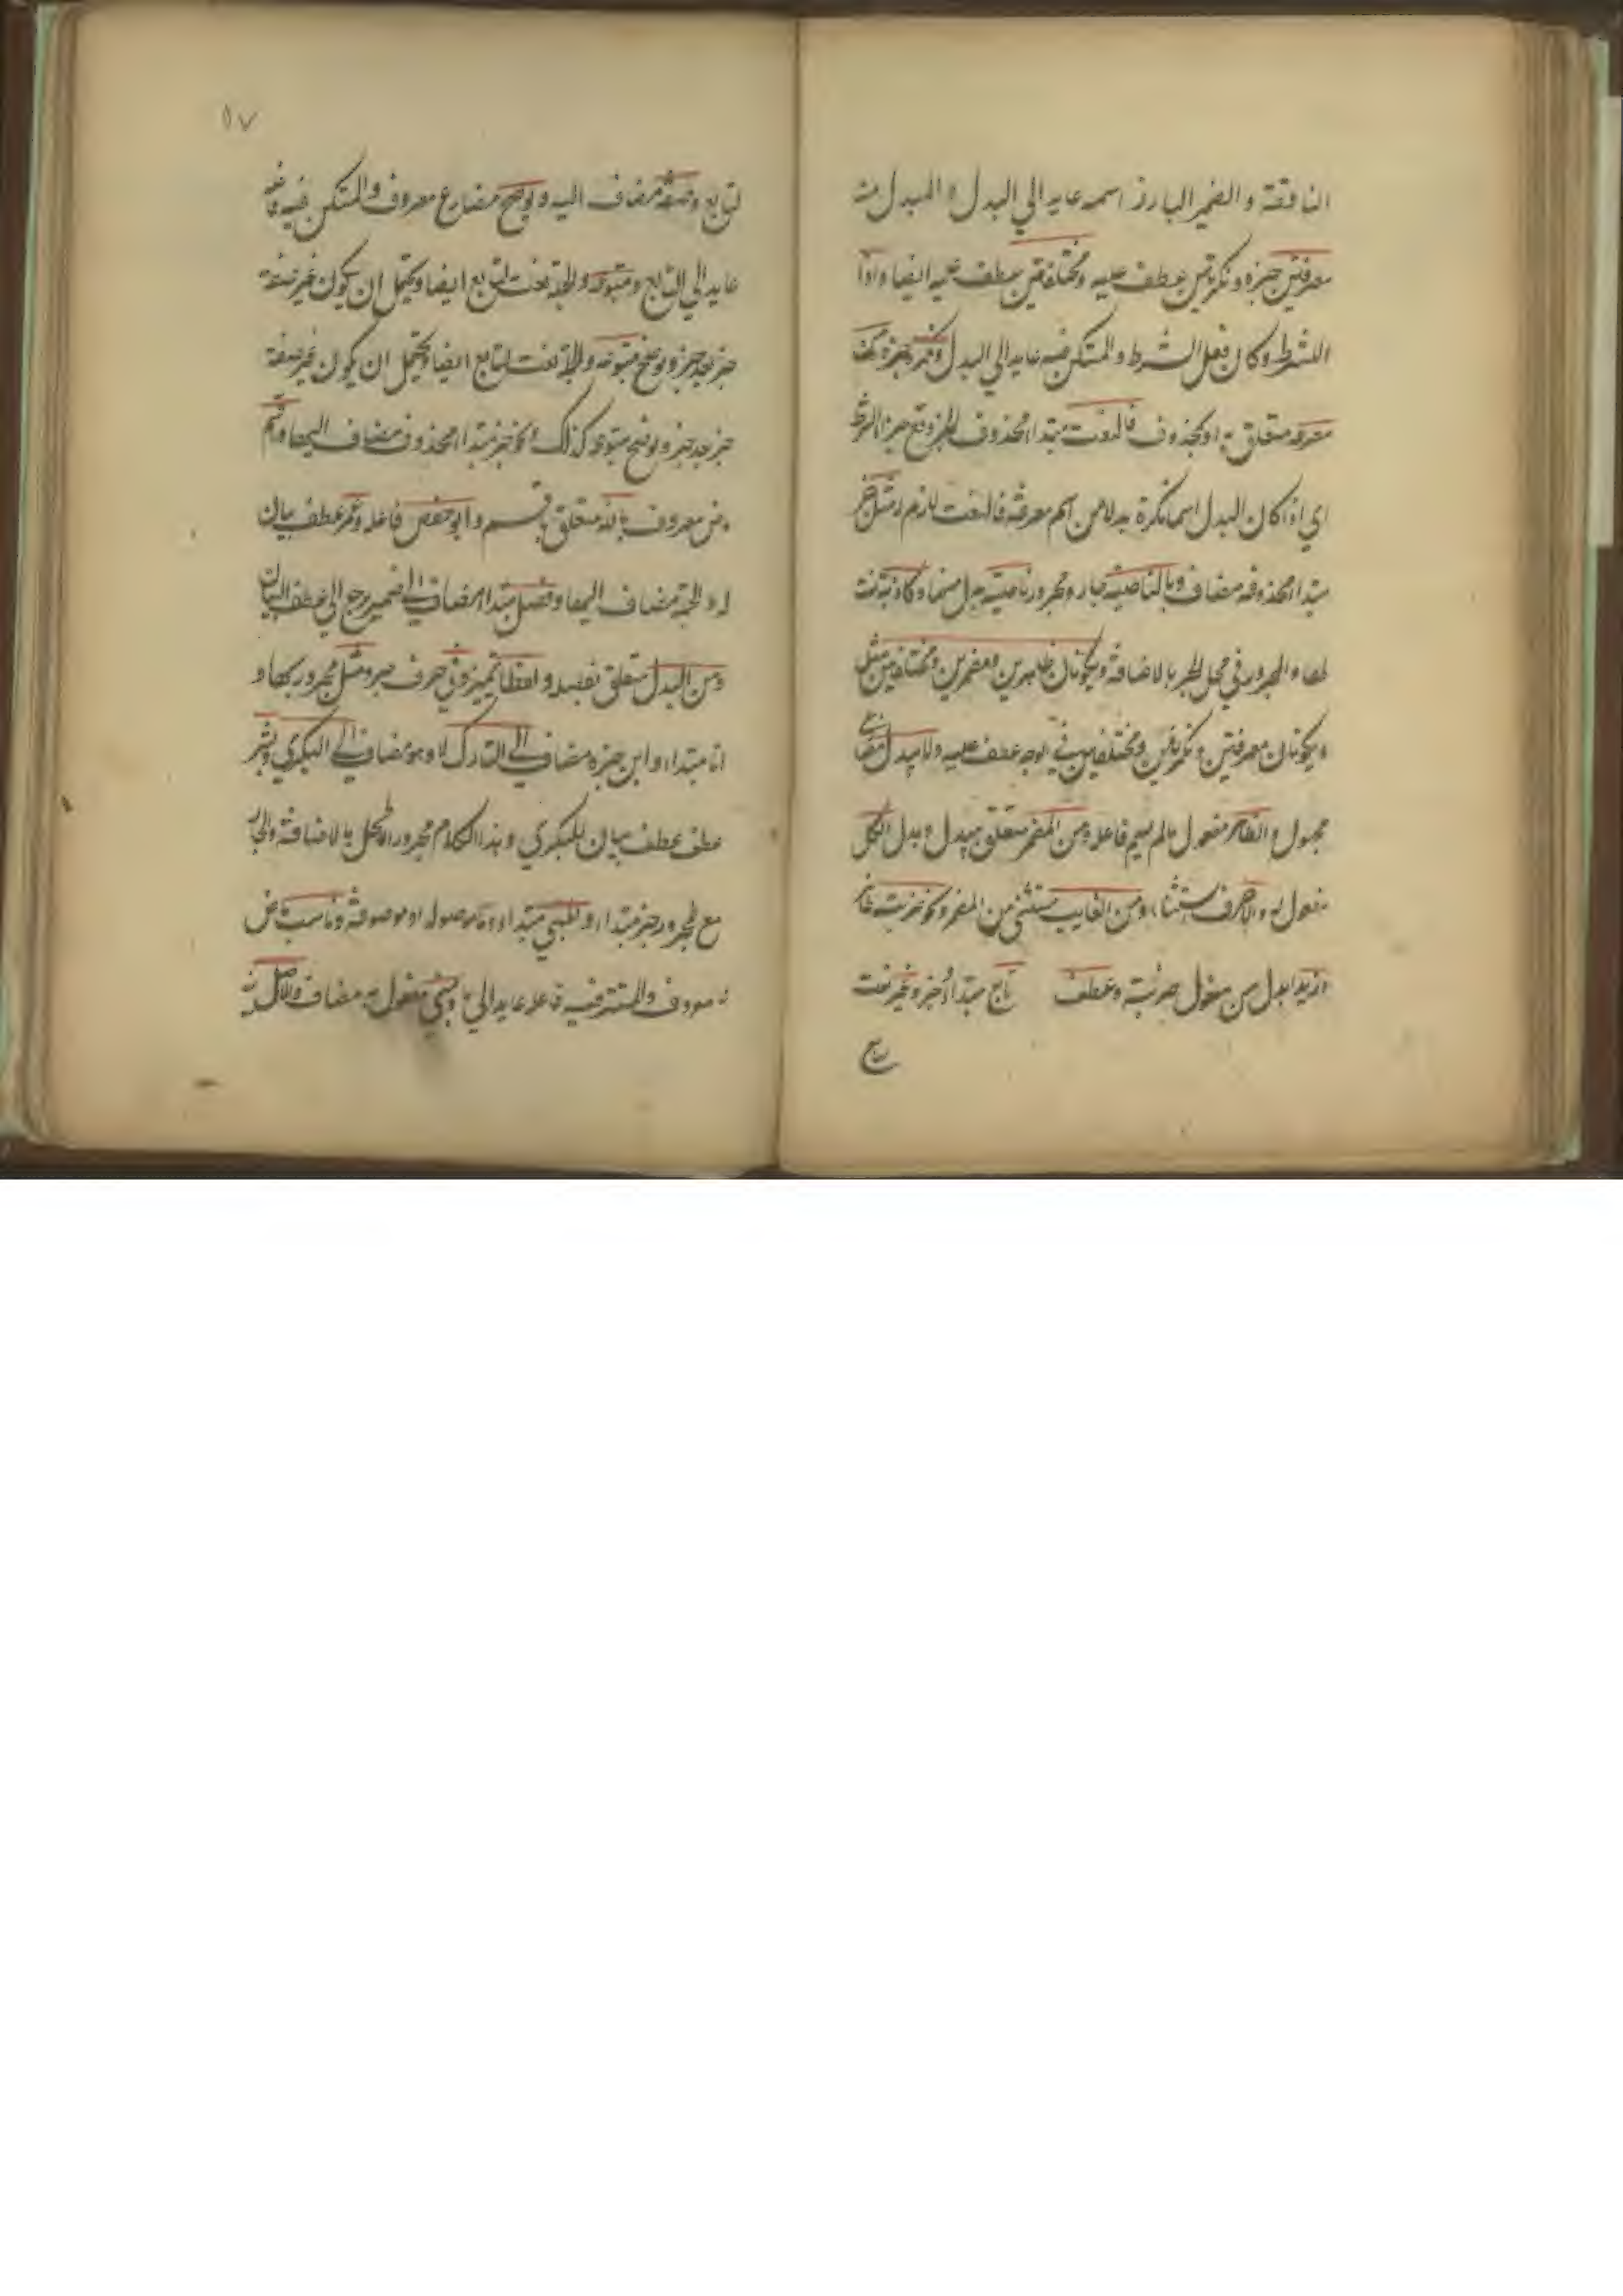 الناقصة والضمير البارز اسمه عايد الي البدل و المبدل منه
معرفتين خبره ونكرتين عطف عليه ومختلفتين عطف عليه ايضا واذا
للشرط وكان فعل الشرط والمستكن فيه عايد الي البدل ونكرة خبره من
معرفة متعلق به او بمحذوف فالنعت مبتدا محذوف الخبر وقع جزاء الشرط
اي اذا كان البدل اسما نكرة بدلا من اسم معرفة فالنعت لازم ومثل خبر
مبتدا محذوف مضاف وبالناصية جار ومجرور ناصية بدل منها وكاذبة نعت
لها والمجرور في محل الجر بالاضافة ويكونان ظاهرين ومضمرين ومختلفين مثل
ويكونان معرفتين ونكرتين ومختلفتين في الوجه عطف عليه ولا يبدل مضارع
مجهول والظاهر مفعول مالم يسم فاعله ومن المضمر متعلق بيبدل وبدل الكل
مفعول له والا حرف استثناء ومن الغايب مستثني من المضمر ونحو ضربته
زيدا بدل من مفعول ضربته وعطف تابع مبتدا وخبر وغير نعت
لتابع وصفة مضاف اليه ويوضح مضارع معروف والمستكن فيه فاعله
عايد الي التابع ومتبوعه والجملة نعت لتابع ايضا ويحتمل ان يكون غير صفة
خبر بعد خبر ويوضح متبوعه والجملة نعت لتابع ايضا ويحتمل ان يكون غير صفة
خبر بعد خبر ويوضح متبوعه كذلك ونحو خبر مبتدا محذوف مضاف اليها واقسم
ماض معروف بالله متعلق باقسم وابو حفص فاعله وعمر عطف بيان
له والجملة مضاف اليها وفصل مبتدا مضاف الي ضمير يرجع الي عطف البيان
ومن البدل متعلق بفصله ولفظا تميز وفي حرف جر ومثل مجرور بها و
انا مبتداء وابن خبره مضاف الي التارك وهو مضاف الي البكري وبشر
عطف بيان للبكري وهذا الكلام مجرور المحل بالاضافة والجار
مع المجرور خبر مبتداء والمبني مبتداء وما موصولة او موصوفة وناسب ماض
معروف والمستتر فيه فاعله عايد الي ما ومبني مفعول به مضاف والاصل